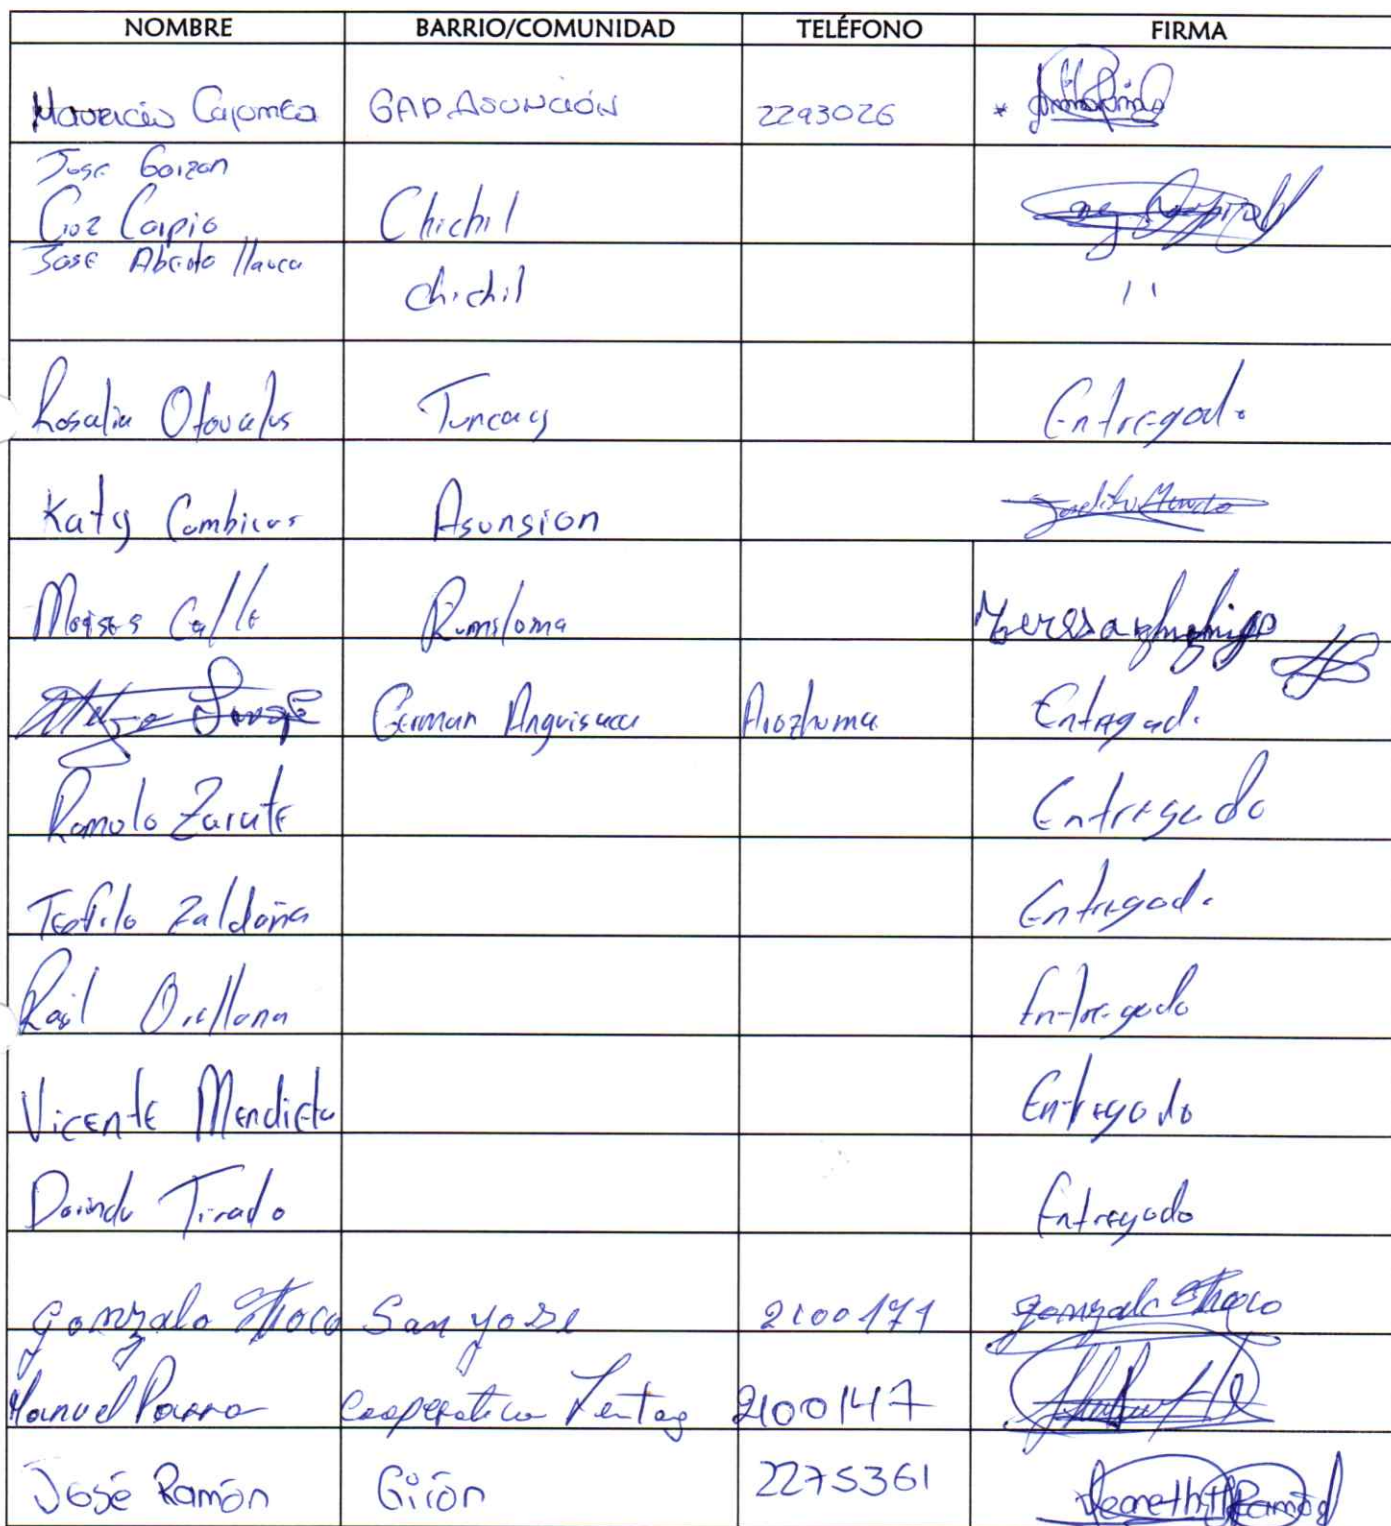 NOMBRE BARRIO/COMUNIDAD TELÉFONO FIRMA
GAD ASUNCIÓN 2293026 *
Jose Garzon
Carpio Chichil
Jose
Chichil 11
Rosalia Tuncay Entregado
Katy Asunsion
Moises Calle Rumiloma
German Entregado
Romulo Zarate Entregado
Teofilo Zaldaña Entregado
Raúl Orellana Entregado
Vicente Mendieta Entregado
Tirado Entregado
Gonzalo San yose 2100171 Gonzalo
Manuel Parra Cooperativa Lentag 2100147
José Ramón Girón 2275361